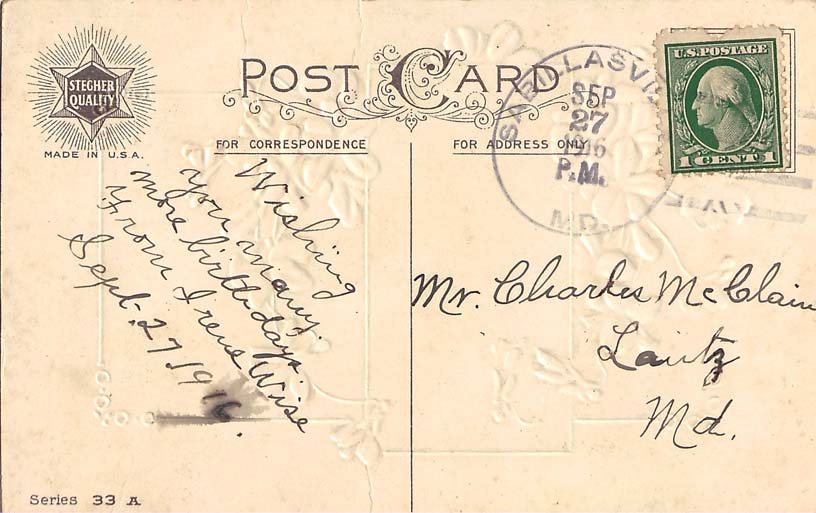 STECHER
QUALITY
MADE IN U.S.A.
POST CARD
FOR CORRESPONDENCE
FOR ADDRESS ONLY
SABILLASVILLE
SEP
27
1916
P.M.
MD.
U.S. POSTAGE
1 CENT 1
Wishing
you many
more birthdays
From Irene Wise
Sept. 27 1916.
Mr. Charles McClain
Lantz
Md.
Series 33 A